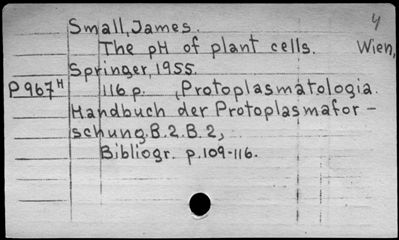 4
Small, James.
The pH of plant cells. Wien,
Springer, 1955.
P967H 116 p. , Protoplasmatologia.
Handbuch der Protoplasmafor-
schung. B. 2. B. 2,
Bibliogr. p. 109-116.